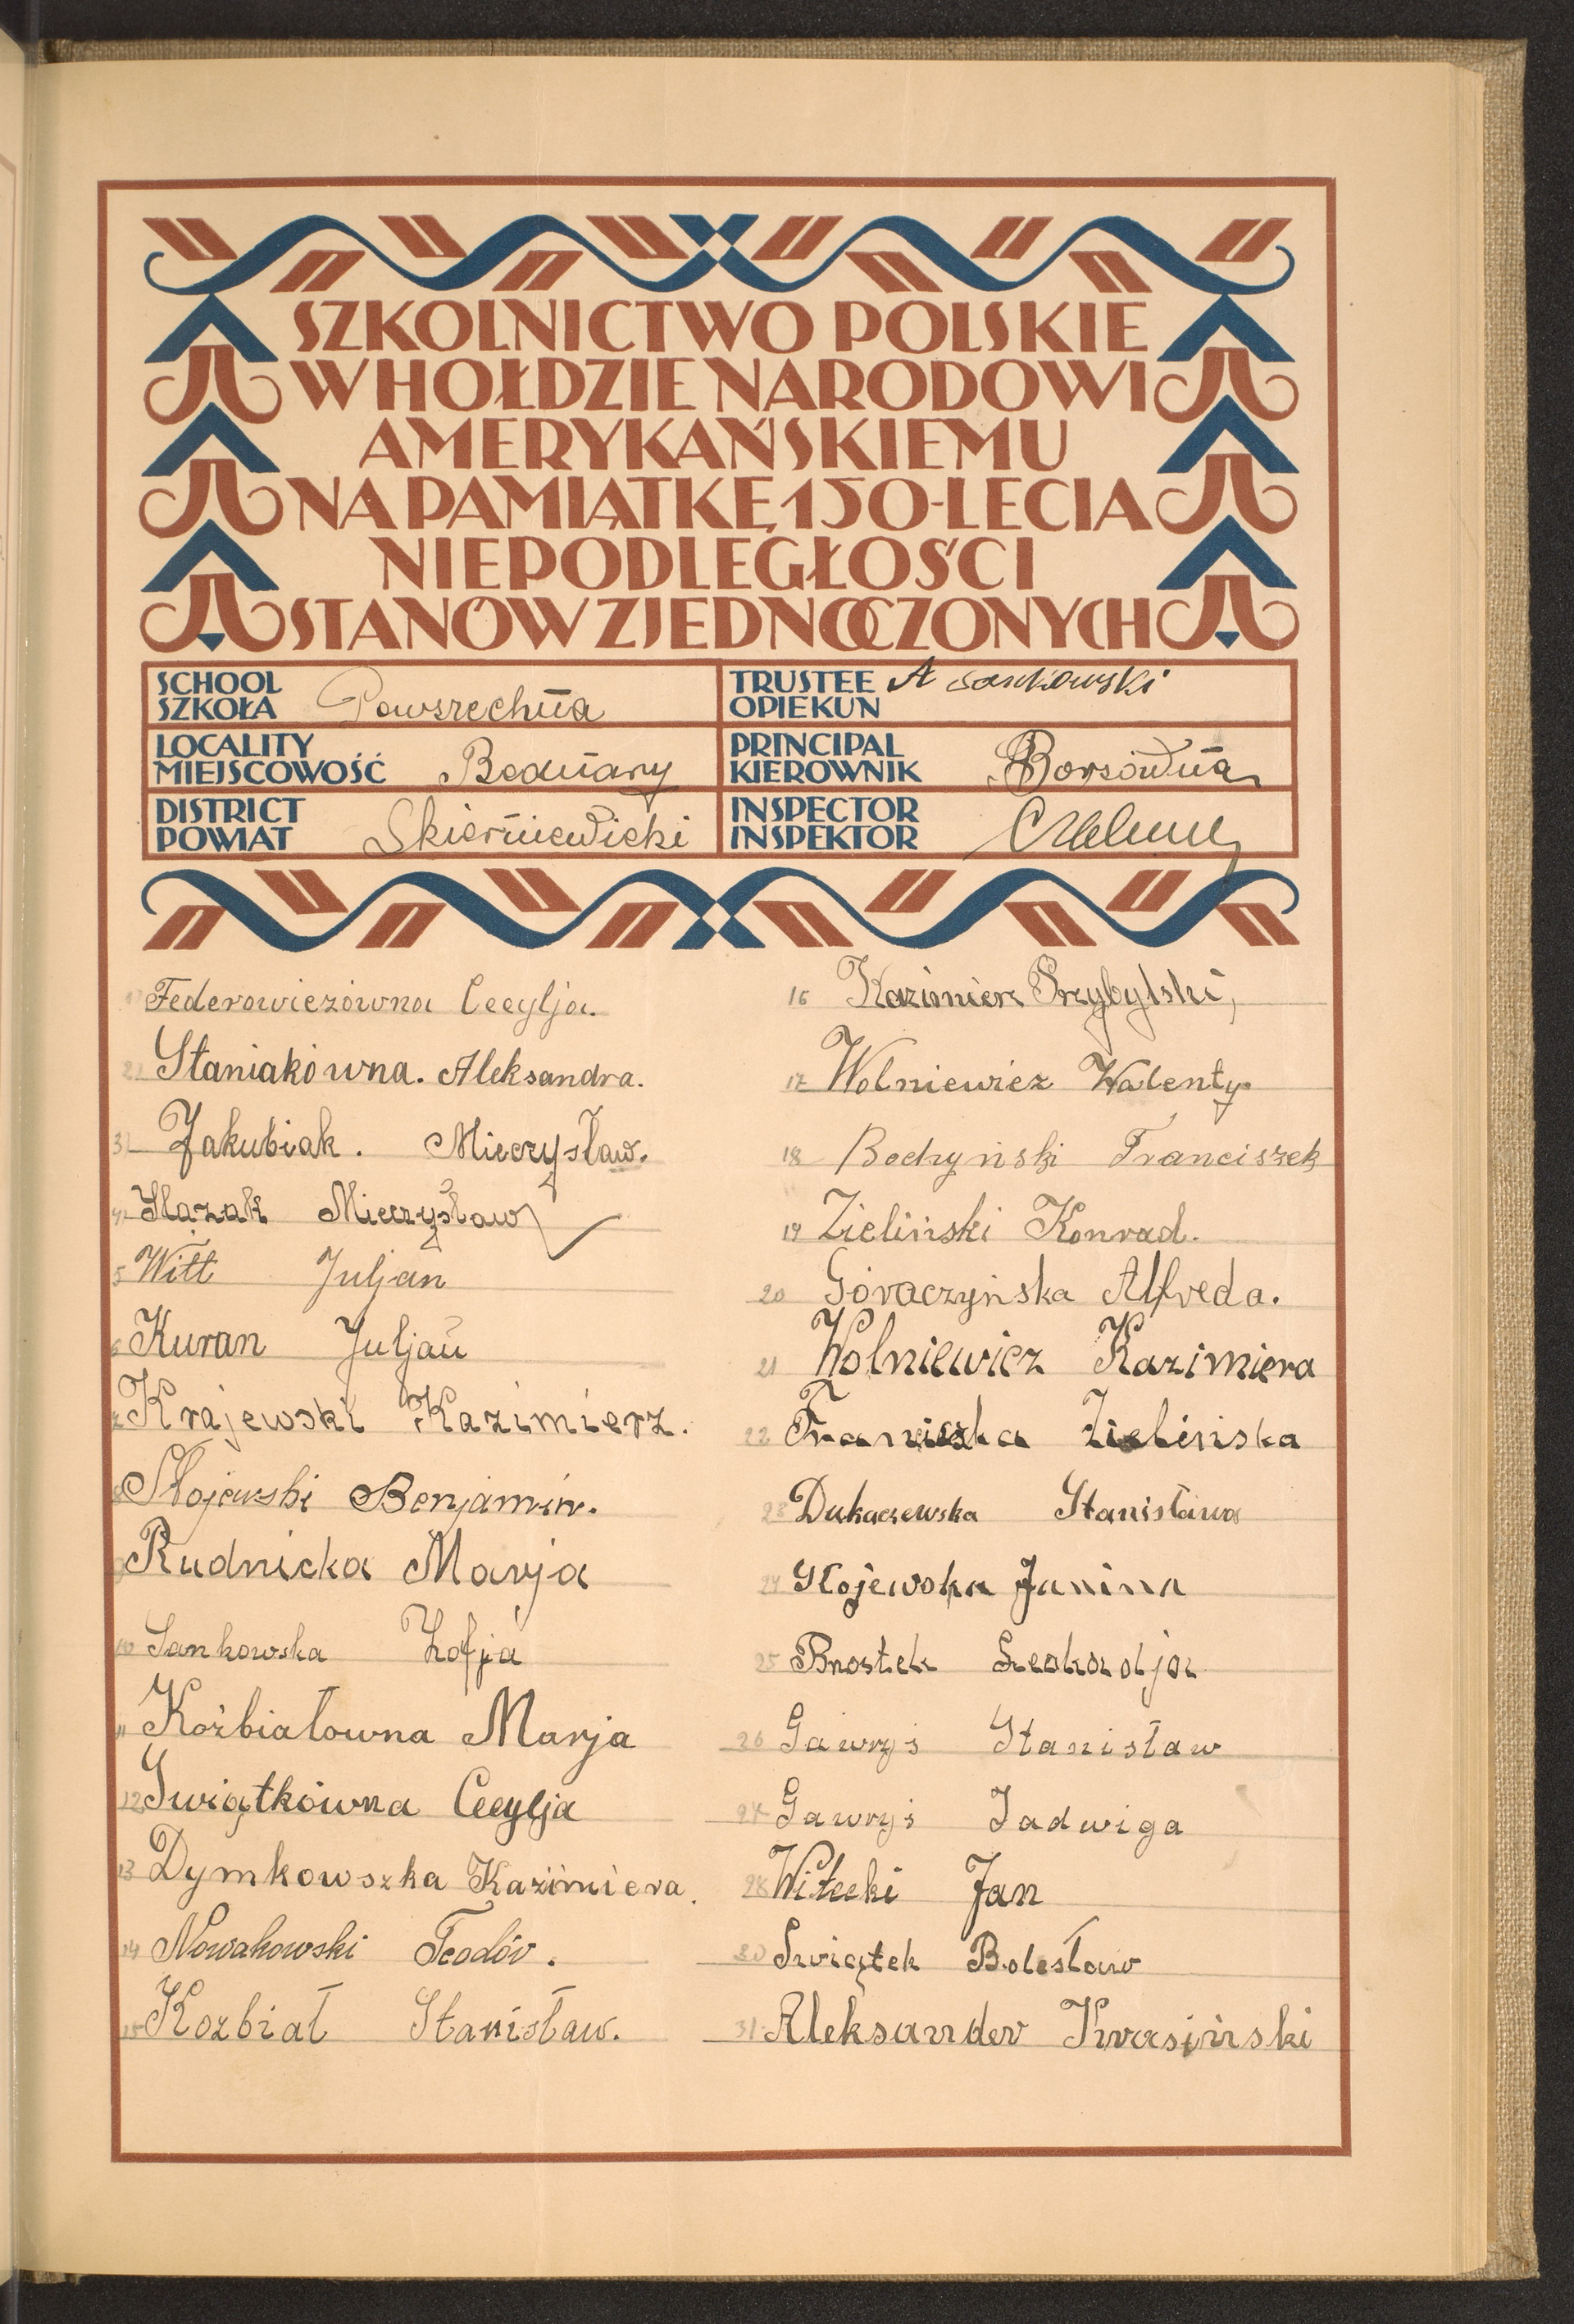 SZKOLNICTWO POLSKIE
W HOŁDZIE NARODOWI
AMERYKAŃSKIEMU
NA PAMIĄTKĘ 150-LECIA
NIEPODLEGŁOŚCI
STANÓW ZJEDNOCZONYCH
SCHOOL
SZKOŁA Powszechna
TRUSTEE A Sankowski
OPIEKUN
LOCALITY
MIEJSCOWOŚĆ Bednary
PRINCIPAL
KIEROWNIK Borsówna
DISTRICT
POWIAT Skierniewicki
INSPECTOR
INSPEKTOR
1 Federowiczówna Cecylja.
2 Staniakówna. Aleksandra.
3 Jakubiak. Mieczysław.
4 Ślązak Mieczysław
5 Witt Juljan
6 Kuran Juljan
7 Krajewski Kazimierz.
8 Stojewski Benjamin.
9 Rudnicka Marja
10 Sankowska Zofja
11 Koźbiałowna Marja
12 Swiątkówna Cecylja
13 Dymkowszka Kazimiera.
14 Nowakowski Teodór.
15 Kozbiał Stanisław.
16 Kazimierz Przybylski,
17 Wolniewicz Walenty.
18 Bodzyński Franciszek
19 Zieliński Konrad.
20 Góraczyńska Alfreda.
21 Wolniewicz Kazimiera
22 Franciszka Zielińska
23 Dukaczewska Stanisława
24 Stojewska Janina
25 Brostek Leokadja
26 Gawryś Stanisław
27 Gawryś Jadwiga
28 Witecki Jan
30 Swiątek Bolesław
31 Aleksander Krasiński